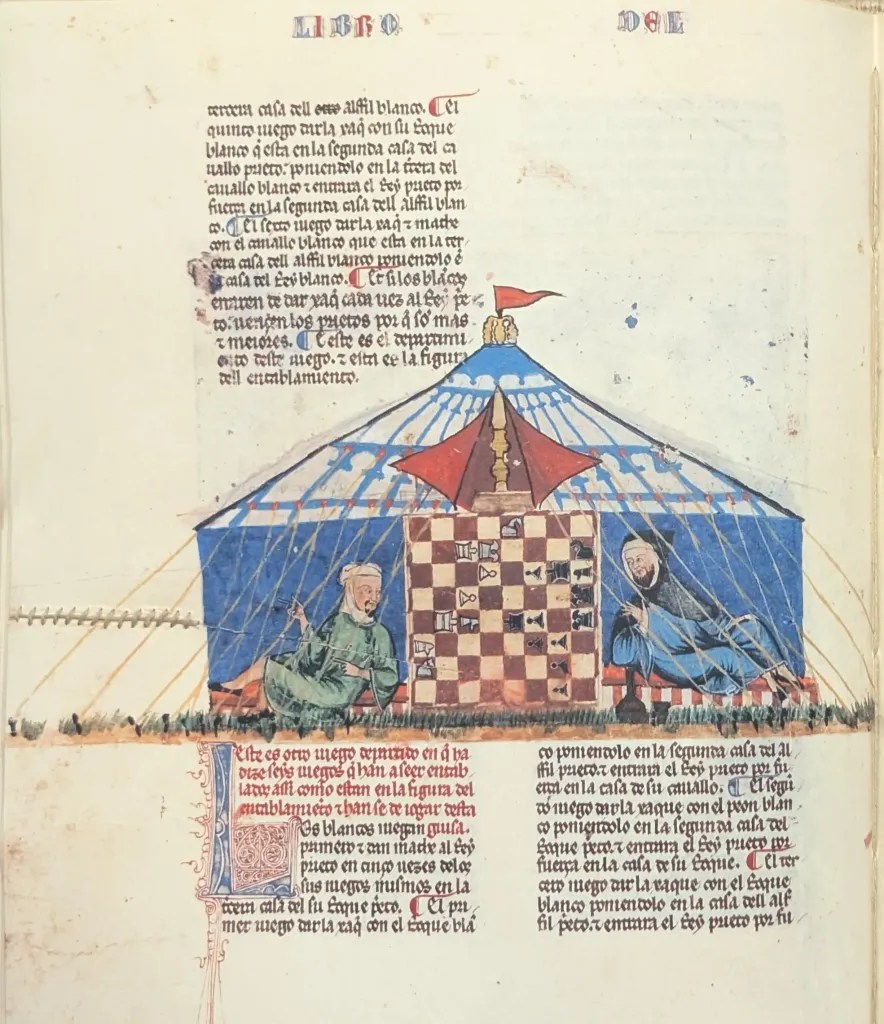 LIBRO DEL
tercera casa dell alffil blanco. ¶ El
quinto iuego darla xaq̃ con su Roque
blanco q̃ esta en la segunda casa del ca
uallo prieto. poniendolo en la t̃cera del
cauallo blanco ⁊ entrara el Rey prieto por
fuerça en la segunda casa dell alffil blan
co. ¶ El sexto iuego darla xaq̃ ⁊ mathe
con el cauallo blanco que esta en la ter
cera casa dell alffil blanco poniendolo ẽ
la casa del Rey blanco. ¶ Et si los blancos
erraren de dar xaq̃ cada uez al Rey p̃e
to. uençen los prietos por q̃ sõ mas
⁊ meiores. ¶ E este es el departimi
ento deste iuego. ⁊ esta es la figura
dell entablamiento.
Este es otro iuego departido en q̃ ha
dize seys iuegos q̃ han a seer entab
lados assi como estan en la figura del
entablamiẽto ⁊ han se de iogar desta
Los blancos iuegan guisa.
primero ⁊ dan mathe al Rey
prieto en cinco uezes delos
sus iuegos mismos en la
t̃cera casa del su Roque p̃eto. ¶ El pri
mer iuego darla xaq̃ con el Roque blã
co poniendolo en la segunda casa del al
ffil prieto. ⁊ entrara el Rey prieto por fu
erça en la casa de su cauallo. ¶ El segũ
do iuego darla xaque con el peon blan
co poniendolo en la segunda casa del
Roque p̃eto. ⁊ entrara el Rey prieto por
fuerça en la casa de su Roque. ¶ El ter
cero iuego darla xaque con el Roque
blanco poniendolo en la casa dell alf
fil p̃eto. ⁊ entrara el Rey prieto por fu